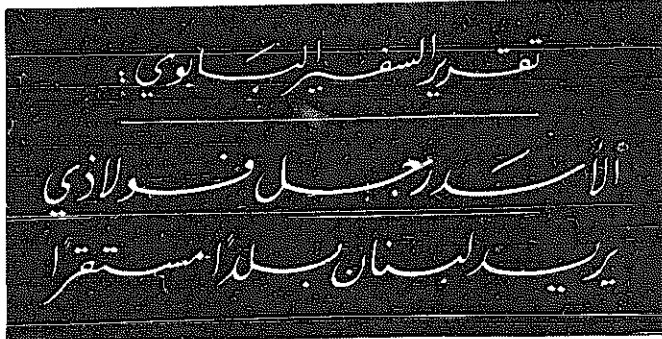 تقرير السفير البابوي:
"الأسد رجل فولاذي
يريد لبنان بلدًا مستقرًا